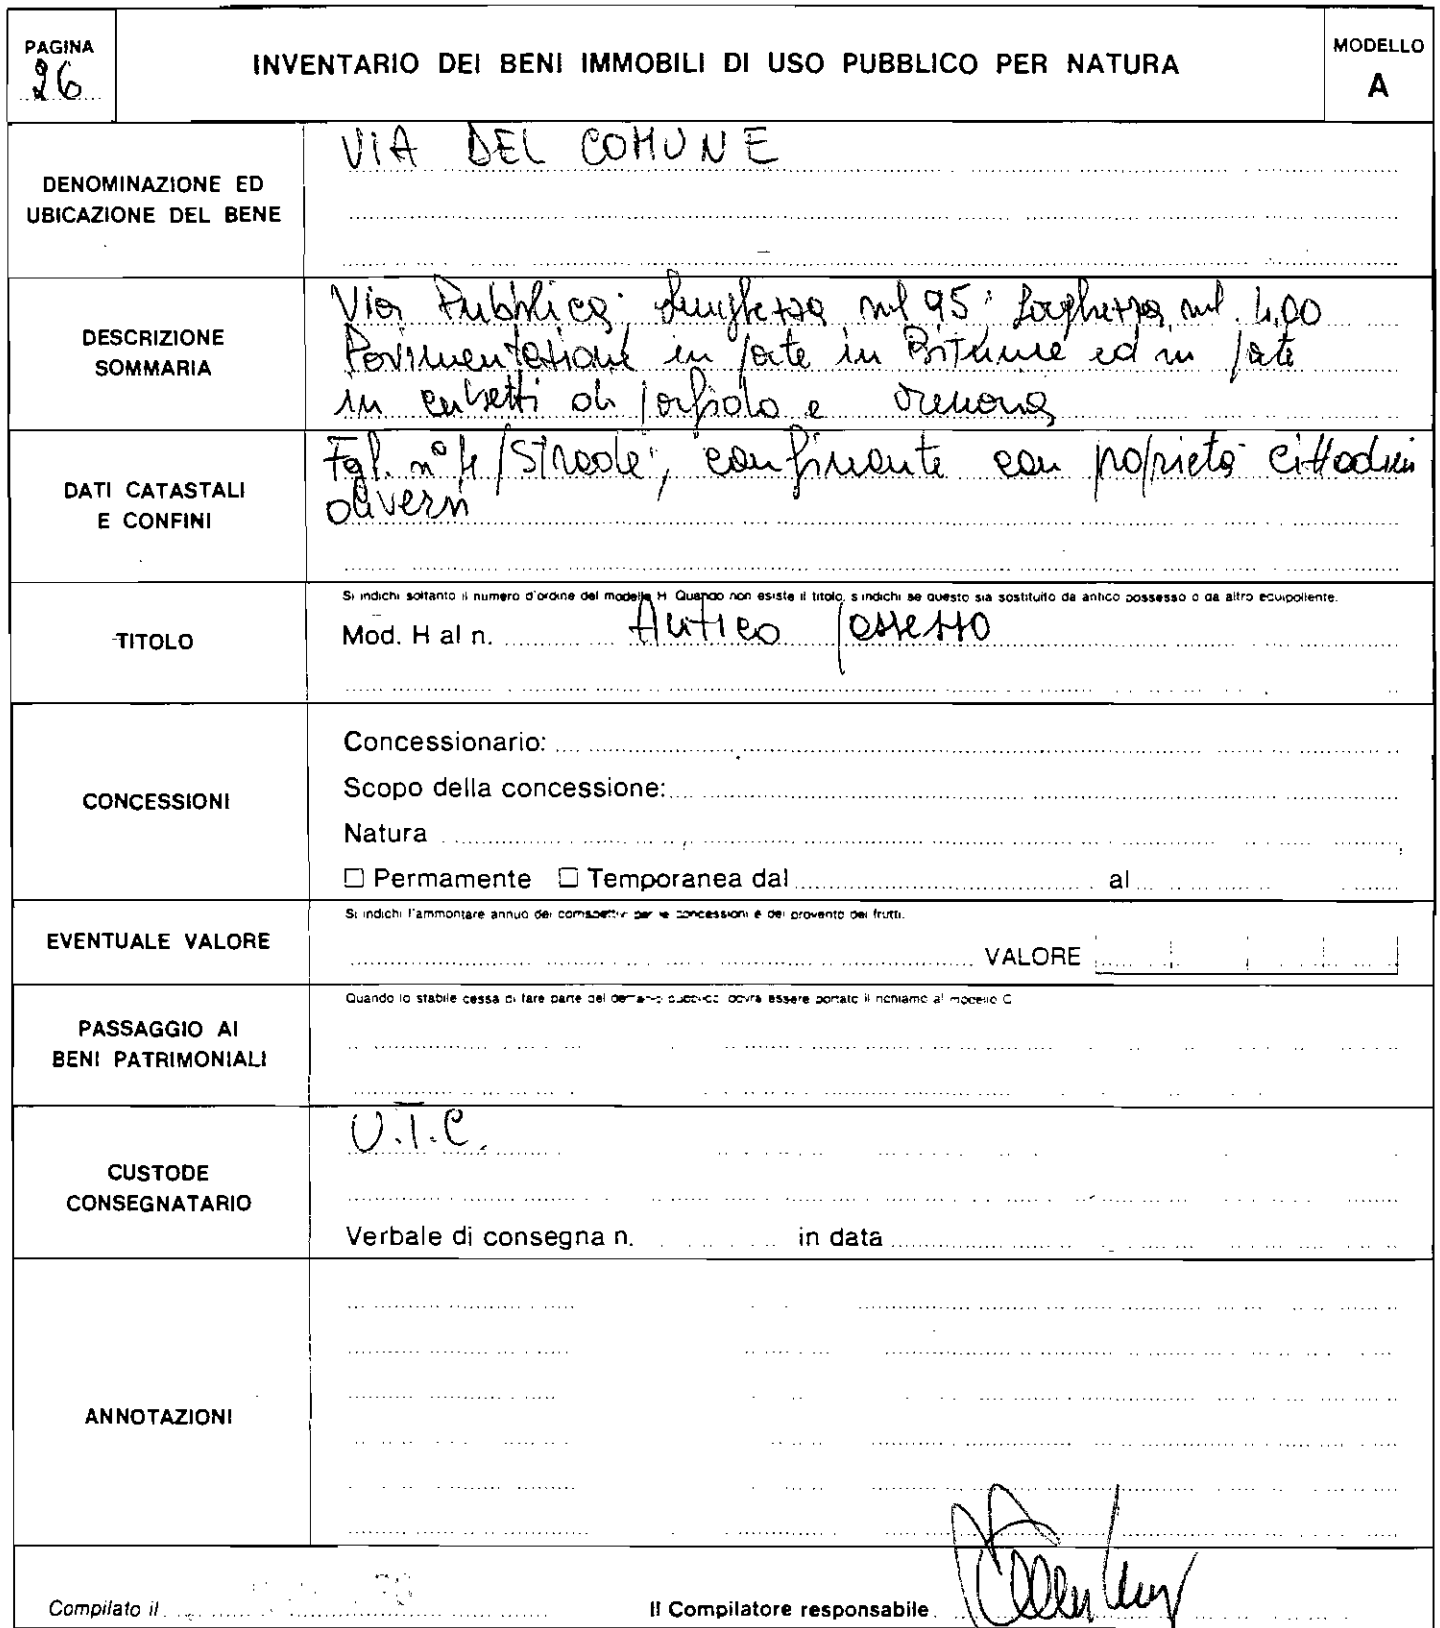 PAGINA
26
INVENTARIO DEI BENI IMMOBILI DI USO PUBBLICO PER NATURA
MODELLO
A
DENOMINAZIONE ED
UBICAZIONE DEL BENE
VIA DEL COMUNE
DESCRIZIONE
SOMMARIA
Via Pubblica: lunghezza ml 95: larghezza ml. 4,00
Pavimentazione in parte in Bitume ed in parte
in cubetti di porfido e
DATI CATASTALI
E CONFINI
Fgl. n° 4 /Strade; confinante con proprietà cittadini
diversi
TITOLO
Si indichi soltanto il numero d'ordine del modello H. Quando non esiste il titolo, s'indichi se questo sia sostituito da antico possesso o da altro equipollente.
Mod. H al n. Antico possesso
CONCESSIONI
Concessionario:
Scopo della concessione:
Natura
☐ Permamente ☐ Temporanea dal al
EVENTUALE VALORE
Si indichi l'ammontare annuo dei corrispettivi per le concessioni e del provento dei frutti.
VALORE
PASSAGGIO AI
BENI PATRIMONIALI
Quando lo stabile cessa di fare parte del demanio pubblico dovrà essere portato il richiamo al modello C
CUSTODE
CONSEGNATARIO
U.T.C.
Verbale di consegna n. in data
ANNOTAZIONI
Compilato il
Il Compilatore responsabile